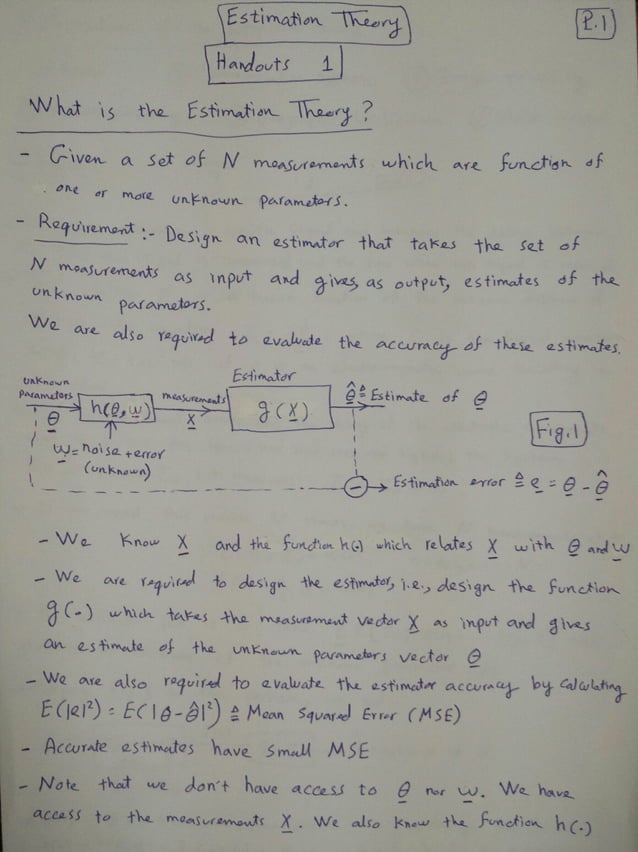 Estimation Theory
P.1
Handouts 1
What is the Estimation Theory?
- Given a set of N measurements which are function of
one or more unknown parameters.
- Requirement:- Design an estimator that takes the set of
N measurements as input and gives, as output, estimates of the
unknown parameters.
We are also required to evaluate the accuracy of these estimates.
unknown parameters
θ
h(θ, w)
measurements
X
Estimator
g(X)
θ̂ ≜ Estimate of θ
Fig.1
w = noise + error
(unknown)
Estimation error ≜ e = θ - θ̂
- We Know X and the function h(.) which relates X with θ and w
- We are required to design the estimator, i.e., design the function
g(.) which takes the measurement vector X as input and gives
an estimate of the unknown parameters vector θ
- We are also required to evaluate the estimator accuracy by calculating
E(|e|²) = E(|θ-θ̂|²) ≜ Mean Squared Error (MSE)
- Accurate estimates have small MSE
- Note that we don't have access to θ nor w. We have
access to the measurements X. We also know the function h(.)